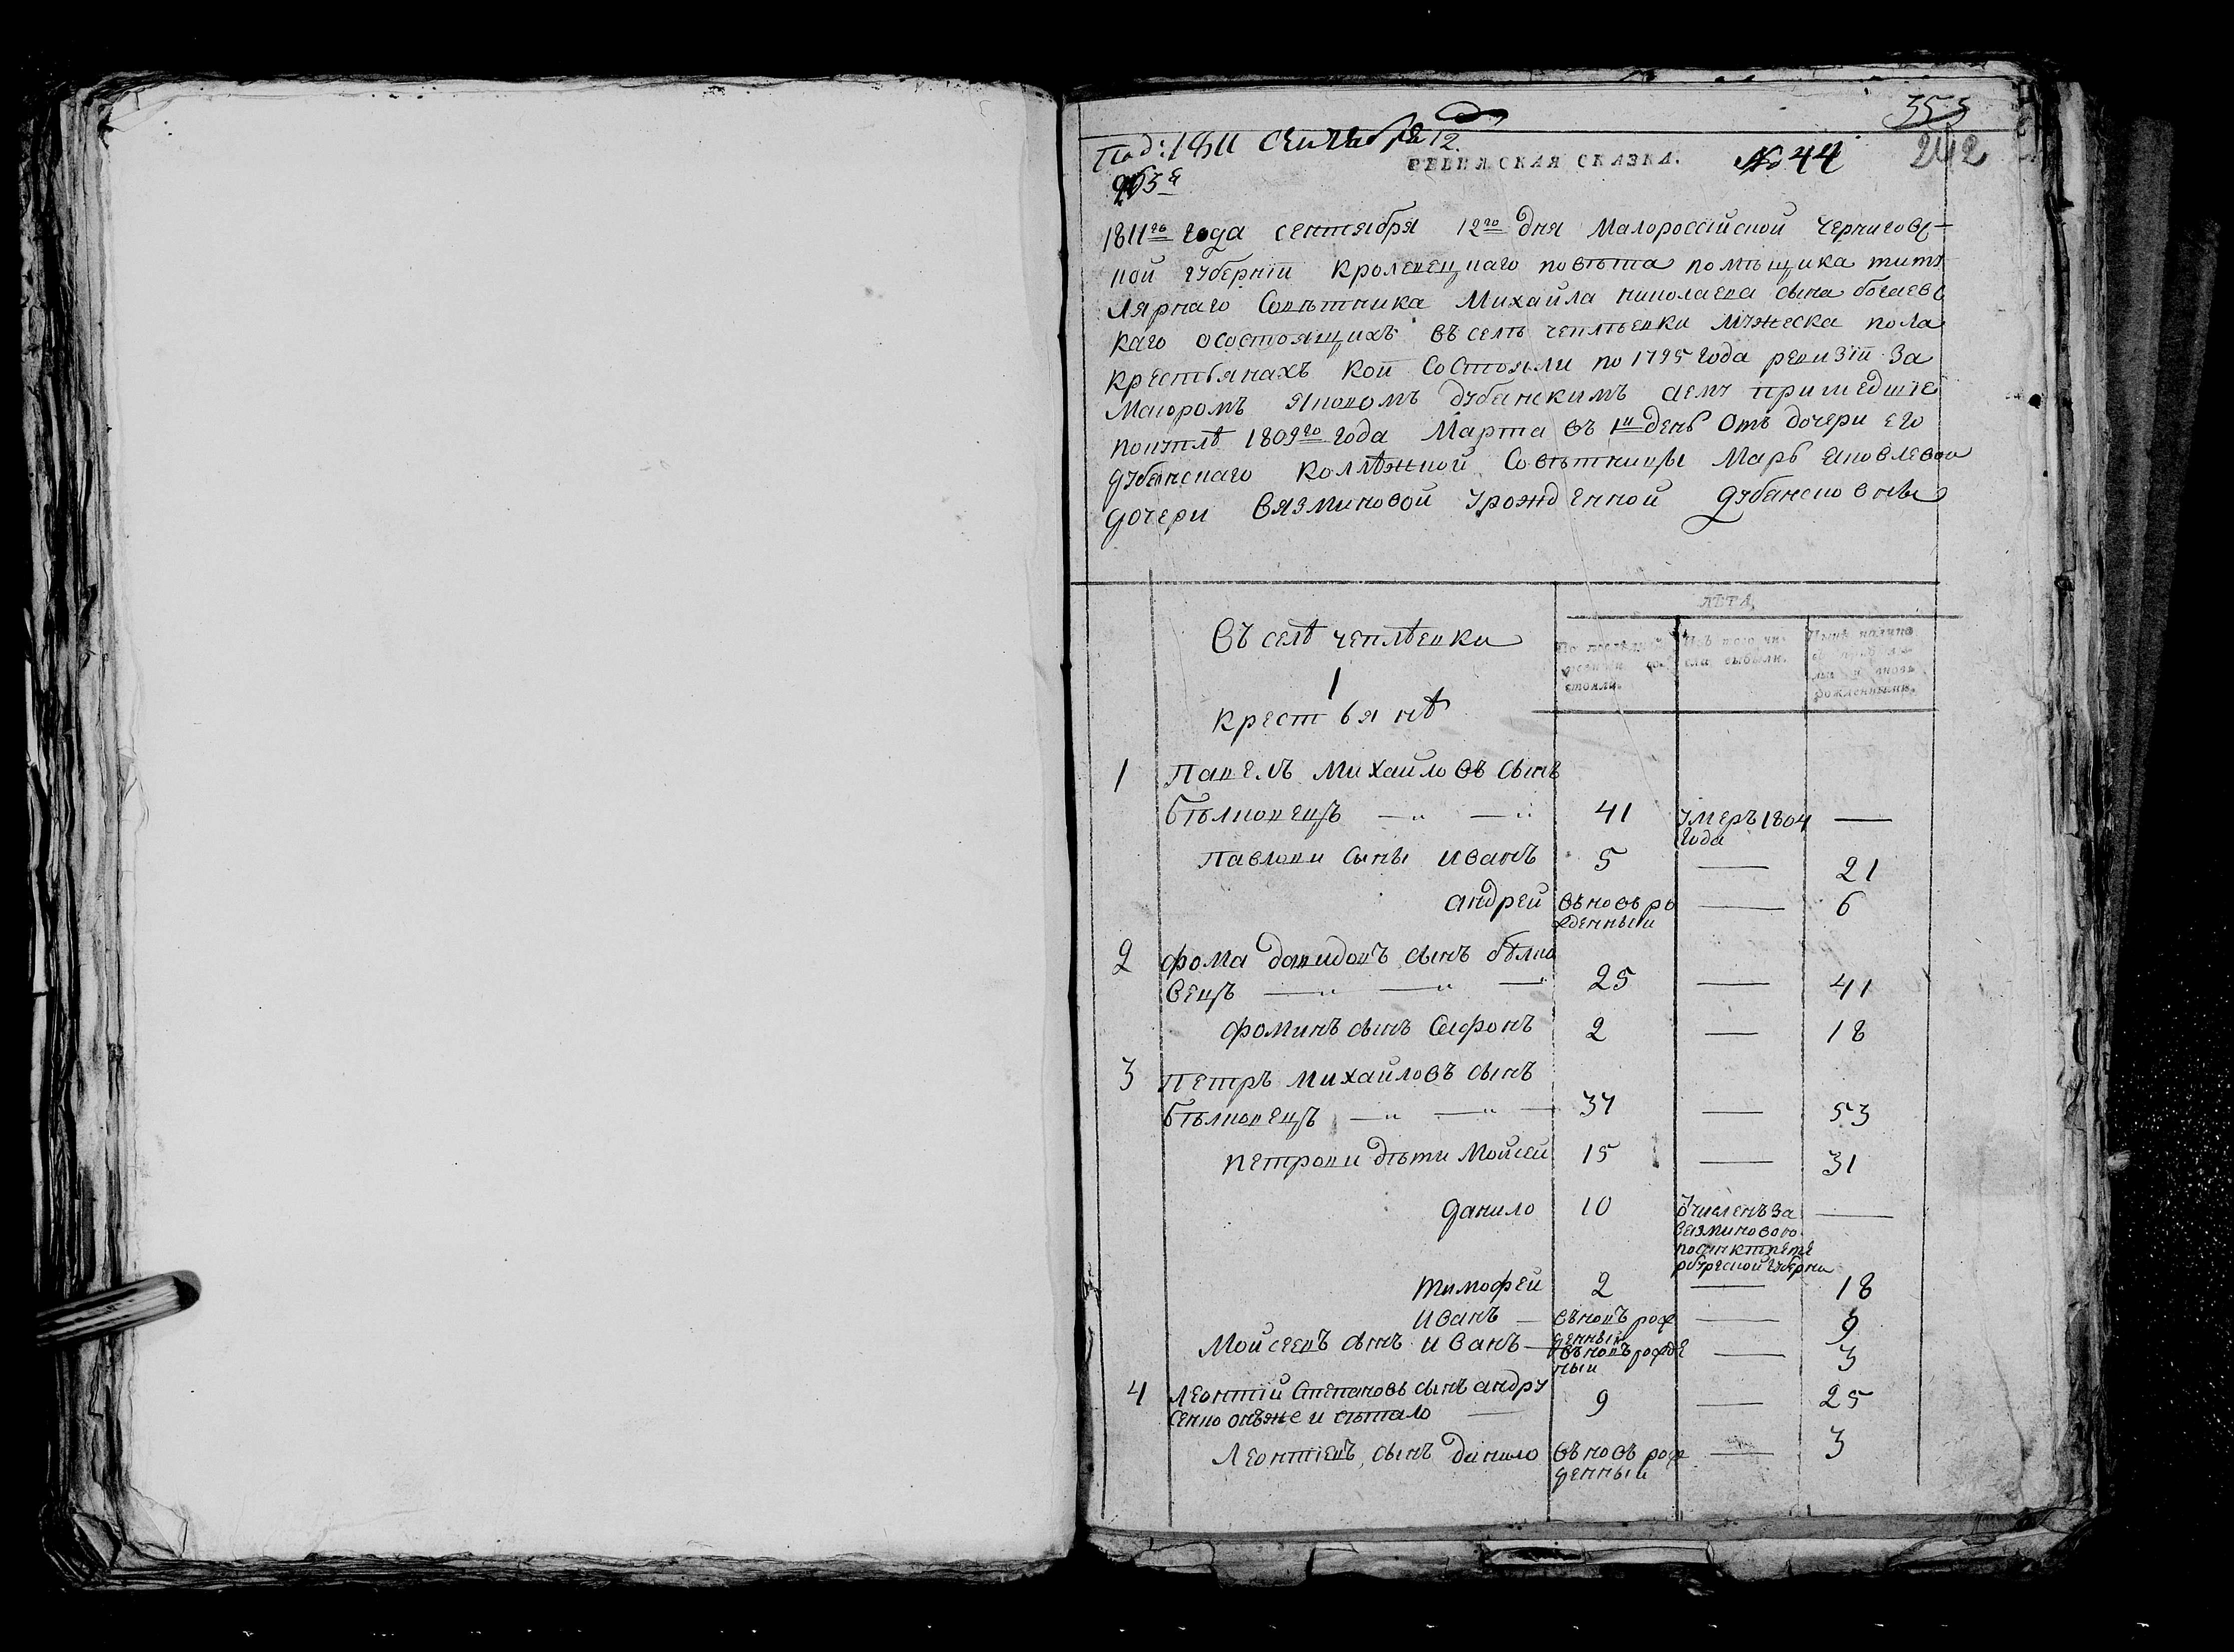 353
Под: 1811 Сентября 12.
РЕВИЖСКАЯ СКАЗКА. № 44 242
1811го года сентября 12го дня Малороссійской Черниговс-
кой губерніи Кролевецкаго повѣта помѣщика титу
лярнаго Совѣтника Михаила николаева сына
каго осостоящихъ въ селѣ чеплѣевки мужеска пола
крестьянахъ кои состояли по 1795 года ревизіи за
Маіоромъ Яковомъ дубянскимъ аему пришедшіе
покуплѣ 1809го года Марта въ 1й день отъ дочери его
дубянскаго коллѣжской Совѣтницы Марьи яковлевой
дочери Вязминовой урожденной дубянсковны
ЛѢТА
Въ селѣ чеплѣевки
По послѣдней ревизіи состояли.
Изъ того числа выбыли.
Нынѣ налицо
вновь рожденными.
1
крестьянѣ
1 Павелъ Михайловъ сынъ
бѣлковецъ 41 умеръ 1804 года —
Павлови сыны иванъ 5 — 21
андрей вѣновъ рожденный — 6
2 фома давидовъ сынъ бѣлко
вецъ 25 — 41
фоминъ сынъ Сафонъ 2 — 18
3 Петръ михайловъ сынъ
бѣлковецъ 37 — 53
петрови дѣти Мойсей 15 — 31
данило 10 Очисленъ за Вязминовою —
тимофей 2 — 18
иванъ — вѣновъ рожденный — 9
Мойсеевъ сынъ иванъ вѣновъ рожденый — 3
4 леонтій степановъ сынъ андру
сенко онъже и 9 — 25
Леонтіевъ сынъ данило вѣновъ рожденный — 3